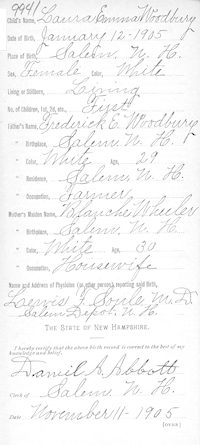 9941
Child's Name, Laura Emma Woodbury
Date of Birth, January 12-1905
Place of Birth, Salem, N. H.
Sex, Female Color, White
Living or Stillborn, Living
No. of Children, 1st, 2d, etc., First
Father's Name, Frederick E. Woodbury
" Birthplace, Salem, N. H.
" Color, White Age, 29
" Residence, Salem N. H.
" Occupation, Farmer
Mother's Maiden Name, Blanche Wheeler
" Birthplace, Salem, N. H.
" Color, White Age, 30
" Occupation, Housewife
Name and Address of Physician (or other person) reporting said Birth,
Lewis F. Soule M. D.
Salem Depot, N. H.
THE STATE OF NEW HAMPSHIRE.
I hereby certify that the above birth record is correct to the best of my
knowledge and belief,
Daniel A. Abbott
Clerk of Salem, N. H.
Date November 11-1905
[OVER]